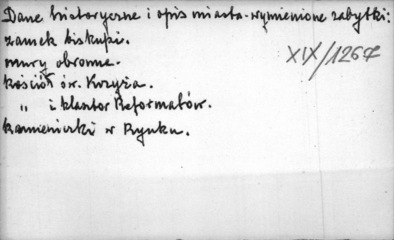 Dane historyczne i opis miasta - wymienione zabytki:
zamek biskupi.
mury obronne.
XIX/1267
kościół św. Krzyża.
" i klasztor Reformatów.
kamieniczki w Rynku.